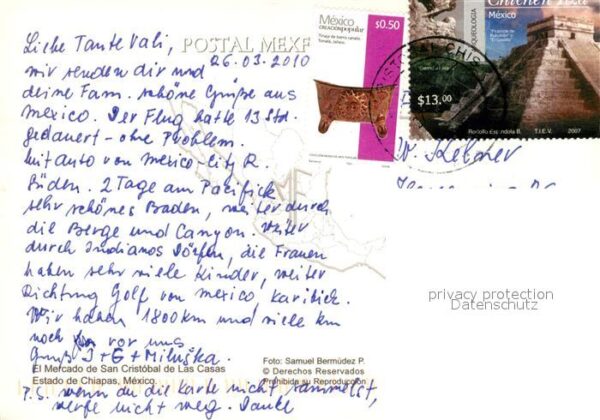 Liebe Tante Vali,
POSTAL MEX
26.03.2010
wir senden dir und
deine Fam. schöne Grüße aus
Mexico. Der Flug hatte 13 Std.
gedauert - ohne Problem.
Mit auto von Mexico-City R.
Süden. 2 Tage am Pacifick
sehr schönes Baden, weiter durch
die Berge und Canyon. Weiter
durch Indianos Dörfen, die Frauen
haben sehr viele Kinder, weiter
Richtung Golf von Mexico, Karibick.
Wir haben 1800 km und viele km
noch vor uns
Gruß J+G+Miluška.
El Mercado de San Cristóbal de Las Casas
Estado de Chiapas, México.
P.S. wenn du die Karte nicht sammelst,
werfe nicht weg. Danke
Foto: Samuel Bermúdez P.
© Derechos Reservados
Prohibida su Reproducción
México
CREACIÓNpopular
$0.50
Chichén Itzá
México
ARQUEOLOGÍA
$13.00
T.I.E.V. 2007
CRISTOBAL CHIS
privacy protection
Datenschutz